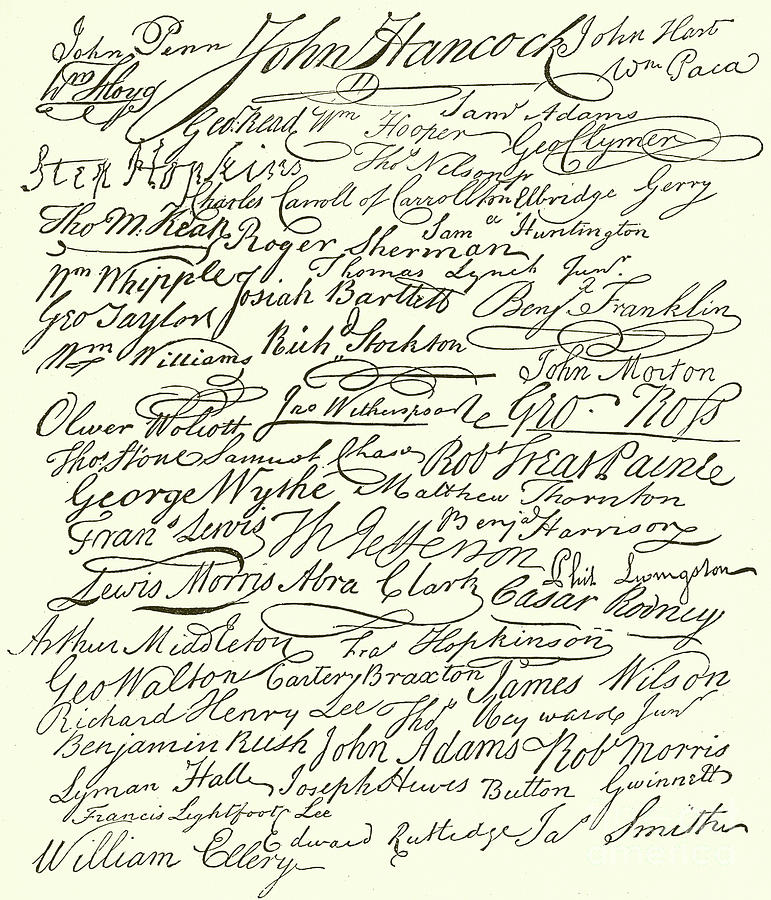 John Penn John Hancock John Hart
Wm Floyd Wm Paca
Geo. Read Wm Hooper Saml Adams
Geo Clymer
Step Hopkins Thos Nelson jr
Charles Carroll of Carrollton Elbridge Gerry
Tho M. Kean Roger Sherman Saml Huntington
Wm Whipple Thomas Lynch Junr.
Josiah Bartlett Benja Franklin
Geo Taylor
Wm Williams Richd Stockton
John Morton
Oliver Wolcott Jno Witherspoon Geo. Ross
Thos Stone Samuel Chase Robt Treat Paine
George Wythe Matthew Thornton
Frans Lewis Th Jefferson Benja Harrison
Lewis Morris Abra Clark Phil. Livingston
Cæsar Rodney
Arthur Middleton Fras Hopkinson
Geo Walton Carter Braxton James Wilson
Richard Henry Lee Thos Heyward Junr
Benjamin Rush John Adams Robt Morris
Lyman Hall Joseph Hewes Button Gwinnett
Francis Lightfoot Lee
William Ellery Edward Rutledge Jas Smith
america